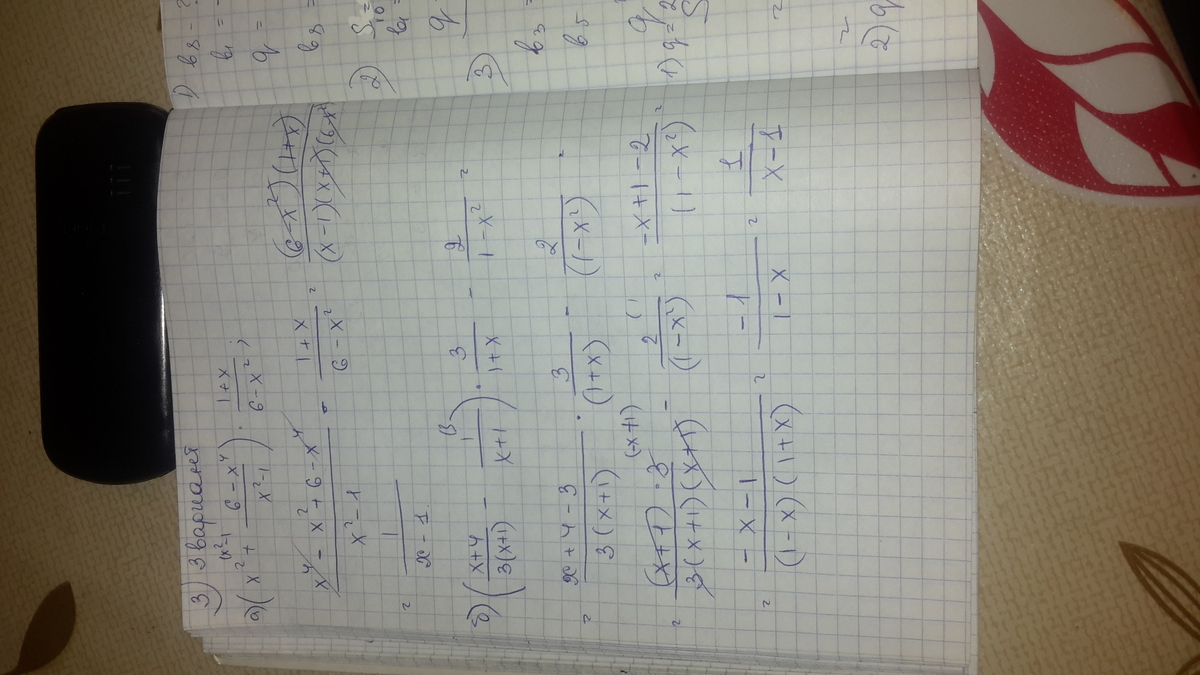 3) 3 вариант
а) (x² + (6-x⁴)/(x²-1)) · (1+x)/(6-x²) ;
(x²-1
(x⁴ - x² + 6 - x⁴)/(x² - 1) · (1+x)/(6-x²) = ((6-x²)(1+x))/((x-1)(x+1)(6-x²))
= 1/(x-1)
б) ((x+4)/(3(x+1)) - 1/(x+1)) · 3/(1+x) - 2/(1-x²) =
(3
= (x+4-3)/(3(x+1)) · 3/(1+x) - 2/(1-x²) =
= ((x+1)·3)/(3(x+1)(x+1)) - 2/(1-x²) = (-x+1-2)/(1-x²) =
(-x+1)
= (-x-1)/((1-x)(1+x)) = -1/(1-x) = 1/(x-1)
1) b₈ -
b₁ =
q =
b₈ =
2) S₁₀ =
b₁
q
3)
b₃ =
b₅
q
1) q = 2
S
=
=
2) q